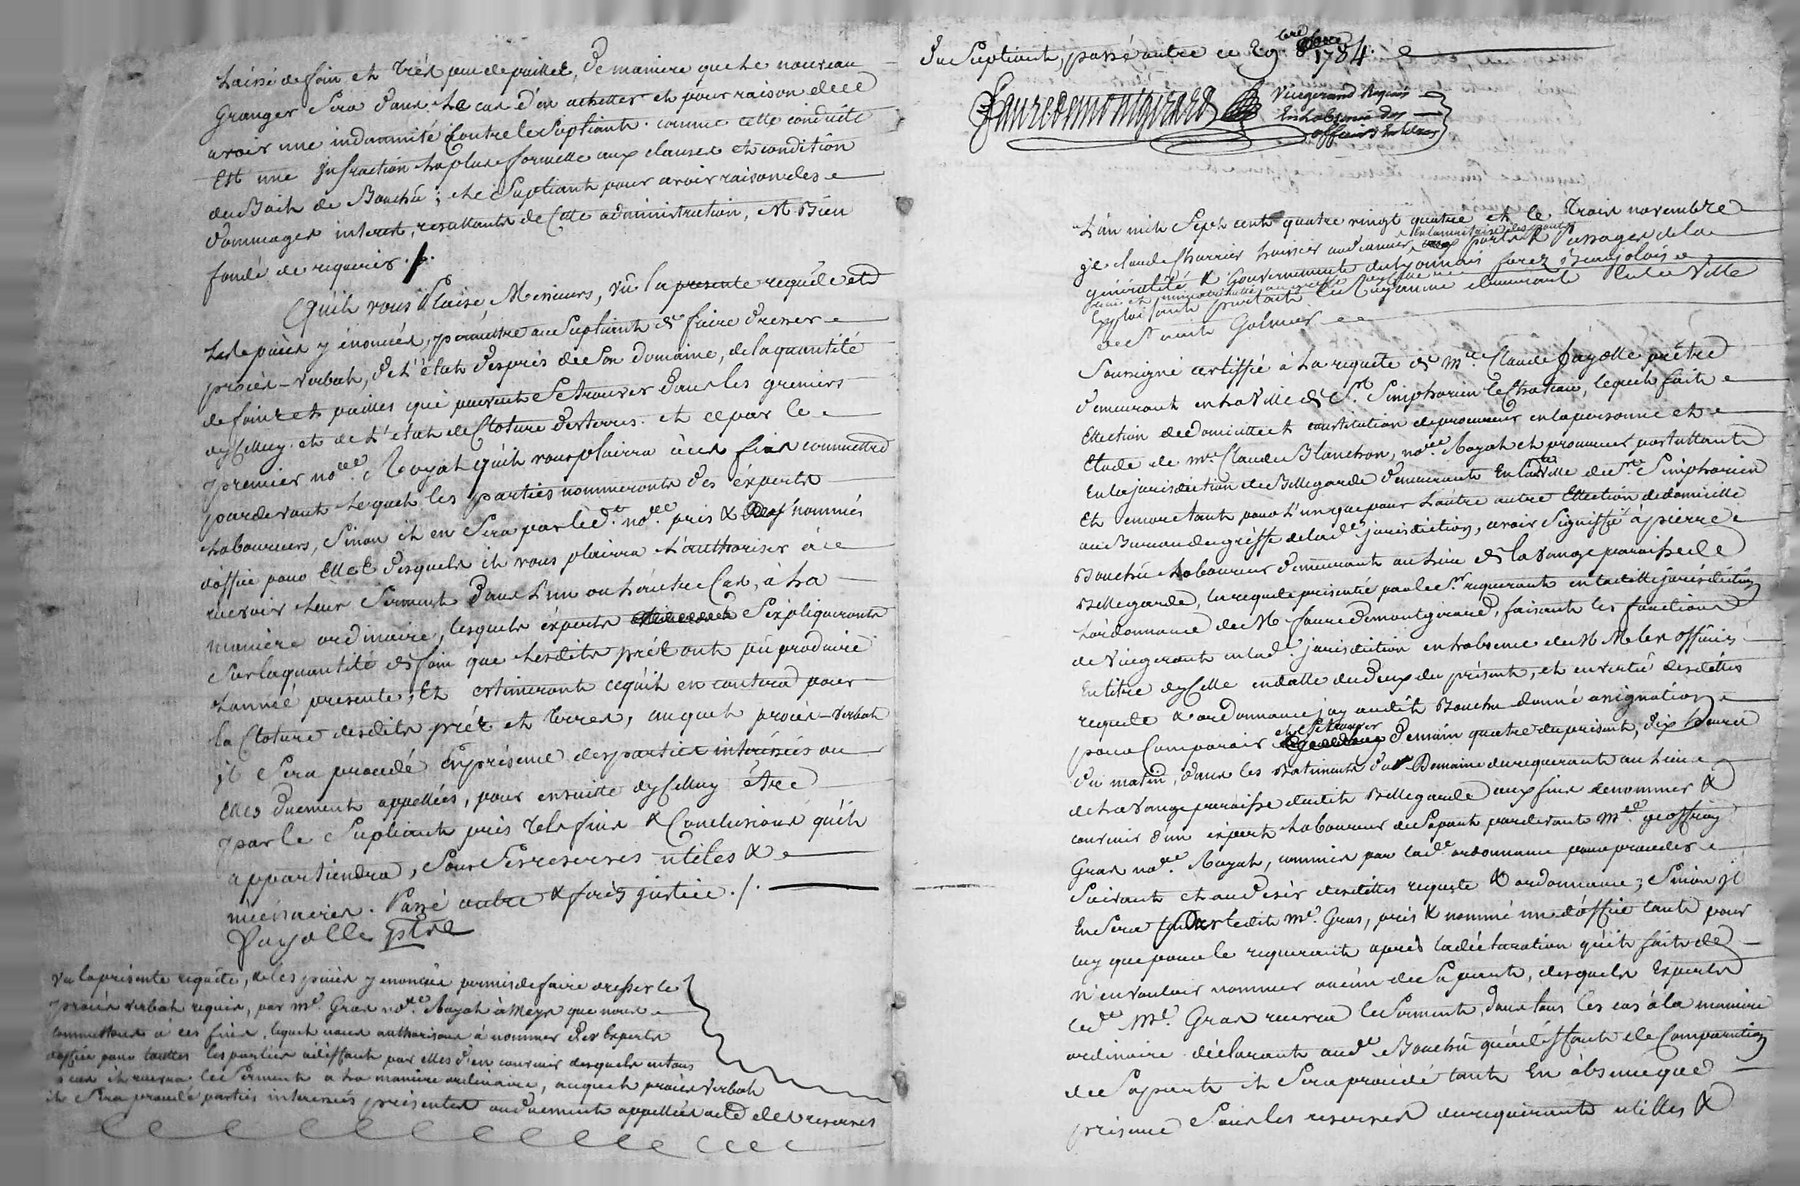 Laissé de foin et très peu de pailles, de maniere que le nouveau
Granger sera dans le cas d'en achetter et pour raison de ce
avoir une indamnité contre le supliant. comme cette conduite
Est une jnfraction la plus formelle aux clauses et condition
du Bail de Bouchu; le supliant pour avoir raison des
dommages interest, resultants de cette administration, est Bien
fondé de requerir ./.
Qu'il vous Plaise, Messieurs, vû la presente requête et
les pièces y énoncées, permettre au supliant de faire dresser
procès-verbal, de l'état des prés de son domaine, de la quantité
de foins et pailles qui peuvent se trouver dans les greniers
dycelluy. et de l'état de Cloture des terres. et ce par le
premier no.re Royal qu'il vous plaira à ces fins commettre
pardevant lequel les parties nommeronts des éxperts
laboureurs, sinon il en sera par led.t no.re pris & nommés
d'office pour Elles desquels il vous plaira l'authoriser à
recevoir leur serment dans l'un ou l'autre Cas, à la
maniere ordinaire, lesquels éxperts s'expliqueronts
sur la quantité de foin que lesdits préz ont pû produire
l'année presente; Et estimeronts ce qu'il en coutera pour
la Cloture desdits préz et terres, auquel procès-verbal
jl sera procedé En présence des parties intérésées ou
Elles duement appellées, pour ensuitte dycelluy être
par le supliant pris telles fins & Conclusions qu'il
appartiendra, sous les reserves utiles &
nécessaires. Passé outre & ferés justice ./.
Fayolle ptre
Vu la présente requête, & les pièces y énoncées permis de faire dresser le
procès verbal requis, par m.e Gras no.re Royal à Meys que nous
commettons à ces fins, lequel nous authorisons à nommer des Experts
d'office pour touttes les parties à deffaut par elles d'en convenir desquels en tous
cas il recevra le serment à la maniere ordinaire, auquel procès verbal
il sera procedé parties interessées présentes ou duement appellées acte des reserves
du supliant, passé outre ce 29 8bre 1784.
Faure de montgirard Vicegerand Requis
En l'absence des
officiers titulaires
L'an mil sept cent quatre vingt quatre et le Trois novembre
je claude Charrier huissier audiancier
généralité & Gouvernement du Lyonnois forez & Beaujolois
Exploitant partout
de saint Galmier
Soussigné certiffie à la requete de m.re Claude fayolle prêtre
demeurant en la ville de S.t Simphorien le Chateau, lequel fait
Ellection de domicille et constitution de procureur en la personne et
Etude de m.e Claude Blanchon, no.re Royal et procureur postullant
En la jurisdiction de Bellegarde demeurant En la ville de S.t Simphorien
Et encore tant pour l'un que pour l'autre autre Ellection de domicille
au Bureau du gréffe de lad.e jurisdiction, avoir signiffié à pierre
Bouchu laboureur demeurant au lieu de la vange paroisse de
Bellegarde, la requete présentée par led.t s.r requerant en laditte jurisdiction
L'ordonnance de M. faure de montgirard, faisant les fonctions
de vicegerant en lad.e jurisdiction en l'absence de M. M. les officiers
En titre dycelle en datte du deux du présent, et en vertu desdittes
requete & ordonnance j'ay audit Bouchu donné assignation
pour Comparoir demain quatre du présent, dix heures
du matin, dans les Batiments du Domaine du requerant au lieu
de la vange paroisse dudit Bellegarde aux fins de nommer &
convenir d'un éxpert laboureur de sa part pardevant M.e geoffray
Gras no.re Royal, commis par lad.e ordonnance pour proceder
suivant et au desir desdittes requete & ordonnance; sinon jl
En sera par ledit M.e Gras, pris & nommé un d'office tant pour
luy que pour le requerant après la déclaration qu'il fait de
n'en vouloir nommer aucun de sa part, desquels Experts
led.t M.e Gras recevra le serment, dans tous les cas à la maniere
ordinaire. déclarant aud.t Bouchu qu'à deffaut de Comparution
de sa part il sera procédé tant En absence que
présence sous les reserves du requerant utilles &